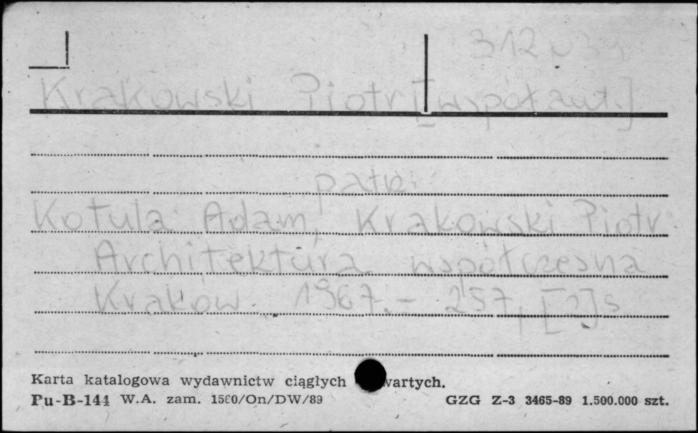 312
Krakowski Piotr [współaut.]
patrz:
Kotula Adam, Krakowski Piotr
Architektura współczesna
Kraków 1967. - 257, [2]s
Karta katalogowa wydawnictw ciągłych wartych.
Pu-B-144 W.A. zam. 1560/On/DW/89 GZG Z-3 3465-89 1.500.000 szt.